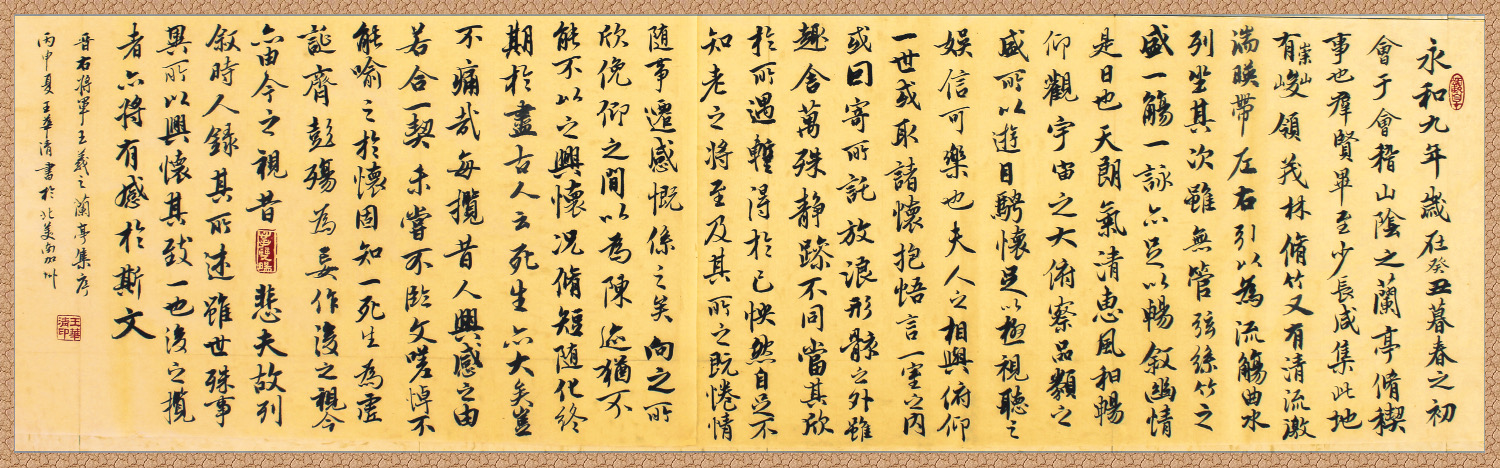 永和九年歲在癸丑暮春之初
會于會稽山陰之蘭亭脩稧
事也群賢畢至少長咸集此地
有崇山峻領茂林脩竹又有清流激
湍暎帶左右引以為流觴曲水
列坐其次雖無管弦絲竹之
盛一觴一詠亦足以暢敘幽情
是日也天朗氣清惠風和暢
仰觀宇宙之大俯察品類之
盛所以遊目騁懷足以極視聽之
娛信可樂也夫人之相與俯仰
一世或取諸懷抱悟言一室之內
或因寄所託放浪形骸之外雖
趣舍萬殊静躁不同當其欣
於所遇蹔得於己怏然自足不
知老之將至及其所之既惓情
随事遷感慨係之矣向之所
欣俛仰之間以為陳迹猶不
能不以之興懷況脩短随化終
期於盡古人云死生亦大矣豈
不痛哉每攬昔人興感之由
若合一契未嘗不臨文嗟悼不
能喻之於懷固知一死生為虛
誕齊彭殤為妄作後之視今
亦由今之視昔悲夫故列
敘時人録其所述雖世殊事
異所以興懷其致一也後之攬
者亦將有感於斯文
晉右將軍王羲之蘭亭集序
丙申夏王華清書於北美南加州
王華清印